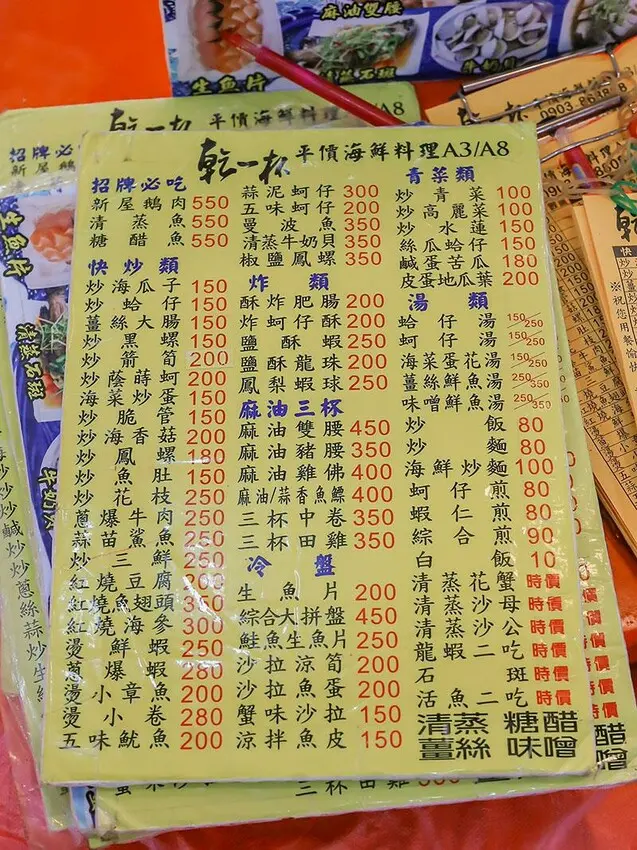 麻油雙腰
生魚片
清蒸石斑
牛奶貝
乾一杯 平價海鮮料理A3/A8
招牌必吃
新屋鵝肉 550
清蒸魚 550
糖醋魚 550
快炒類
炒海瓜子 150
炒蛤仔 150
薑絲大腸 150
炒黑螺 150
炒箭筍 200
炒蔭蒔蚵 200
海菜炒蛋 150
炒脆管 150
炒海香菇 200
炒鳳螺 180
炒魚肚 150
炒花枝 250
蔥爆牛肉 250
蒜苗鯊魚 250
炒三鮮 250
紅燒豆腐 200
紅燒魚翅頭 350
紅燒海參 300
燙鮮蝦 250
蔥爆蝦 280
燙小章魚 200
燙小卷 280
五味魷魚 200
蒜泥蚵仔 300
五味蚵仔 200
曼波魚 350
清蒸牛奶貝 350
椒鹽鳳螺 350
炸類
酥炸肥腸 200
炸蚵仔酥 200
鹽酥蝦 250
鹽酥龍珠 200
鳳梨蝦球 250
麻油三杯
麻油雙腰 450
麻油豬腰 350
麻油雞佛 400
麻油/蒜香魚鰾 400
三杯中卷 350
三杯田雞 350
冷盤
生魚片 200
綜合大拼盤 450
鮭魚生魚片 250
沙拉涼筍 200
沙拉魚蛋 200
蟹味沙拉 150
涼拌魚皮 150
青菜類
炒青菜 100
炒高麗菜 100
炒水蓮 150
絲瓜蛤仔 150
鹹蛋苦瓜 180
皮蛋地瓜葉 200
湯類
蛤仔湯 150/250
蚵仔湯 150/250
海菜蛋花湯 150/250
薑絲鮮魚湯 250/350
味噌鮮魚湯 250/350
炒飯 80
炒麵 80
海鮮炒麵 100
蚵仔煎 80
蝦仁煎 80
綜合煎 90
白飯 10
清蒸花蟹 時價
清蒸沙母 時價
清蒸沙公 時價
龍蝦二吃 時價
石斑 時價
活魚二吃 時價
清蒸 糖醋
薑絲 味噌